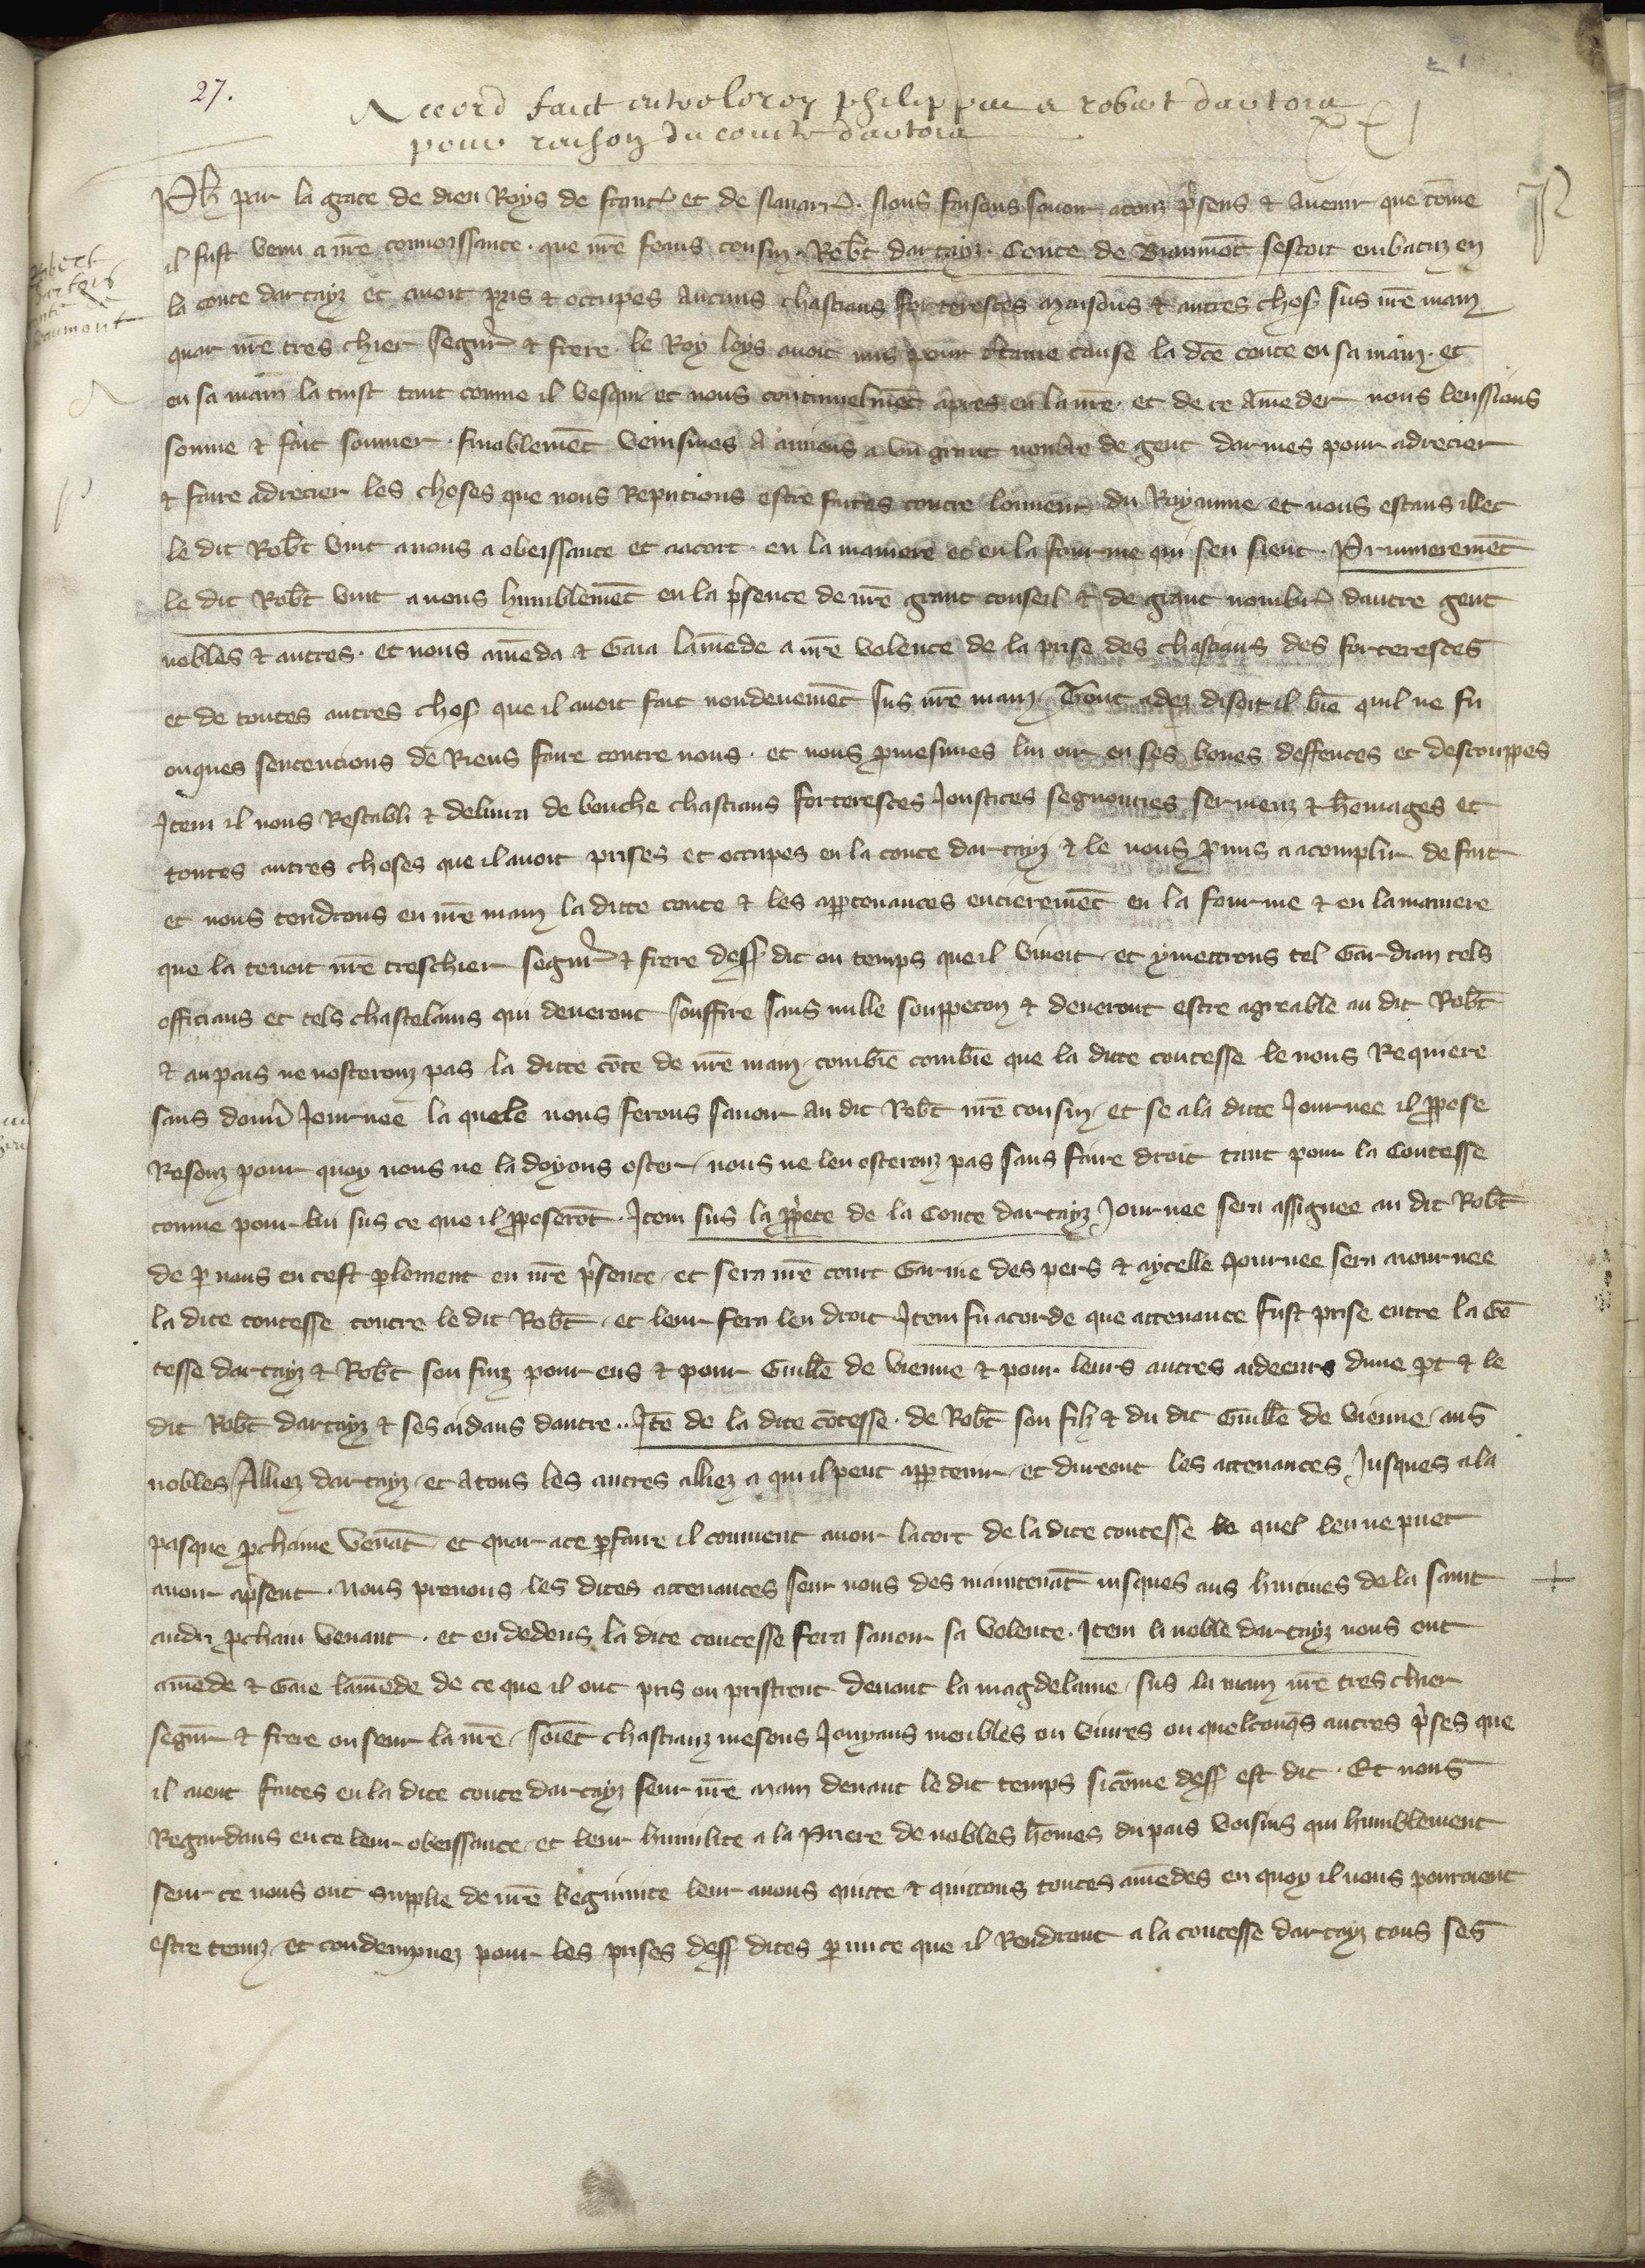 27.
Accord faict entre le roy philippe et robert dartois
pour raison du conte dartois
XXI
Robert
dartois
conte de
beaumont
Ph par la grace de dieu Roys de franc et de Nauarr. Nous faisons sauoir a touz psens & auenir que come
il fust venu a nre connoissance. que nre feaus cousin. Robt dartayz. Conte de Biaumot sestoit embatuz en
la conte dartayz et auoit pris & occupes aucuns chastiaus forterestes maisons & autres chos sus nre main
quar nre tres chier segnr & frere le Roy loys auoit mis pour ctaine cause la dce conte en sa main. et
en sa main la tint tant comme il vesqui et nous continuelmet apres en la nre. et de ce ameder nous leussions
somme & fait sommer. finablemet venismes a amiens a un grant nombre de gent darmes pour adrecier
& faire adrecier les choses que nous Reputions estre faites contre lonneur du Royaume et nous estans illec
le dit Robt vint a nous a obeissance et aacort. en la maniere et en la fourme qui sen sieut. Primieremet
le dit Robt vint a nous humblemet en la psence de nre grant conseil & de grant nombr dautre gent
nobles & autres. et nous ameda & Gaia lamede a nre volente de la prise des chastiaus des forterestes
et de toutes autres chos que il auoit fait nondeuemet sus nre main. Tout adez disoit il bie quil ne fu
onques sentencions de Riens faire contre nous. et nous pmesimes lui oir en ses bones deffences et descouppes
Item il nous Restabli & deliura de bouche chastiaus forterestes Joustices segnouries sermenz & homages et
toutes autres choses que il auoit prises et occupes en la conte dartayz & le nous pmis a acomplir de fait
et nous tendrons en nre main la ditte conte & les apptenances entieremet en la fourme & en la maniere
que la tenoit nre treschier segnr & frere dess dit ou temps que il viuoit. et ymettrons tel Gardian tels
officiaus et tels chastelains qui deueront souffire sans nulle souppecon & deueront estre agreable au dit Robt
& au pais ne nosteronz pas la ditte cote de nre main. combie combie que la ditte contesse le nous Requiere
sans donn Journee la quele nous ferons sauoir au dit Robt nre cousin. et se a la ditte Journee il ppose
Resonz pour quoy nous ne la doyons oster. nous ne len osteronz pas sans faire droit tant pour la Contesse
comme pour lui sus ce que il pposerot. Item sus la pprete de la Conte dartayz Journee sera assignee au dit Robt
de p nous en cest plement en nre psence. et sera nre court Garnie des pers & aycelle Journee sera aiournee
la dite contesse contre le dit Robt. et leur fera len droit Item fu acorde que attenance fust prise entre la Co
tesse dartayz & Robt son fiuz pour eus & pour Guille de vienne & pour leurs autres aideeurs dune pt & le
dit Robt dartayz & ses aidans dautre.. Ite de la dite cotesse. de Robt son filz & du dit Guille de vienne. aus
nobles Alliez dartayz. et a tous les autres alliez a qui il peut apptenir. et dureont les attenances Jusques a la
pasque pchaine venat et quar ace pfaire il conuient auoir lacort de la dite contesse le quel len ne puet
auoir apsent. Nous prenons les dites attenances seur nous des maintenat iusques aus huitiues de la saint
andri pchain venant. et en dedens la dite contesse fera sauoir sa volente. Item li noble dartayz nous ont
amede & Gaie lamede de ce que il ont pris ou pristrent deuant la magdelaine. sus la main nre tres chier
segnr & frere ou seur la nre. soiet chastiauz mesons Jouyaus meubles ou viures ou quelconqs autres pses que
il aient faites en la dite conte dartayz seur nre main deuant le dit temps sicome dess est dit. Et nous
Regardans en ce leur obeissance. et leur humilite a la Priere de nobles homes du pais voisins qui humblement
seur ce nous ont supplie de nre begninite leur auons quitte & quittons toutes amedes en quoy il nous pourroient
estre tenuz. et condempnez pour les prises dess dites p mi ce que il Rendront a la contesse dartayz tous ses